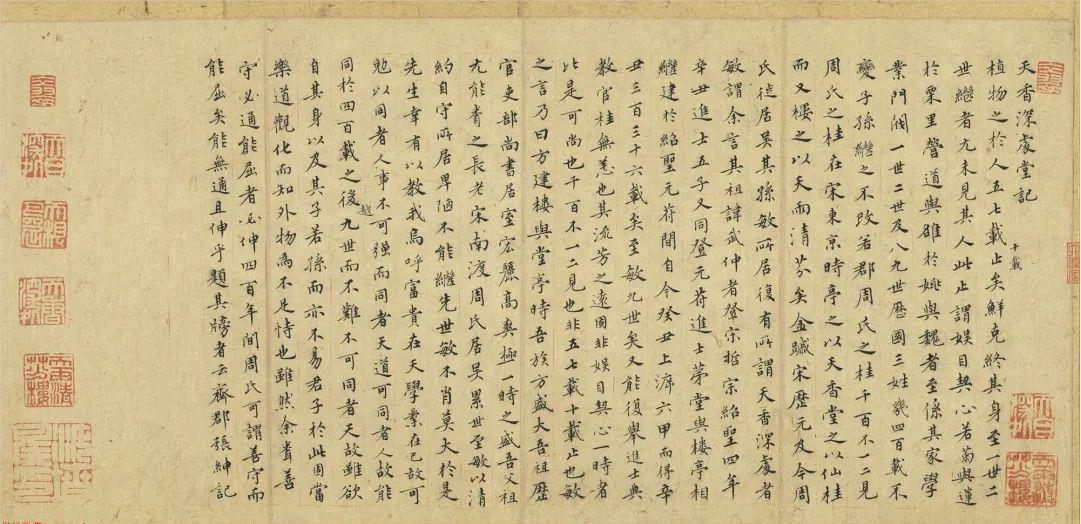 天香深處堂記
植物之於人五七載止矣鮮克終其身至一世二
十載
世繼者九未見其人此止謂娛目契心若菊與蓮
於栗里營道與雖於姚與魏者至係其家學
業門閥一世二世及八九世歷國三姓幾四百載不
變子孫繼之不改若郡周氏之桂千百不一二見
周氏之桂在宋東京時亭之以天香堂之以仙桂
而又樓之以天雨清芬矣金踰宋歷元及今周
氏徙居吳其孫敏所居復有所謂天香深處者
敏謂余言其祖諱武仲者登宗哲宗紹聖四年
辛丑進士五子又同登元符進士第堂與樓亭相
繼建於紹聖元符間自今癸丑上泝六甲而得辛
丑三百三十六載矣至敏九世矣又能復舉進士典
教官桂無恙也其流芳之遠固非娛目契心一時者
比是可尚也千百不一二見也非五七載十載止也敏
之言乃曰方建樓與堂亭時吾族方盛大吾祖歷
官吏部尚書居室宏麗高爽極一時之盛吾父祖
尤能耆之長老宋南渡周氏居吳累世至敏以清
約自守所居卑陋不能繼先世敏不肖莫大於是
先生幸有以教我烏呼富貴在天學業在己故可
勉以同者人事不可強而同者天道可同者人故能
同於四百載之後九世而不難不可同者天故雖欲
趂
自其身以及其子若孫而亦不易君子於此固當
樂道觀化而知外物為不足恃也雖然余嘗善
守必通能屈者必伸四百年間周氏可謂善守而
能屈矣能無通且伸乎題其牓者云齊郡張紳記